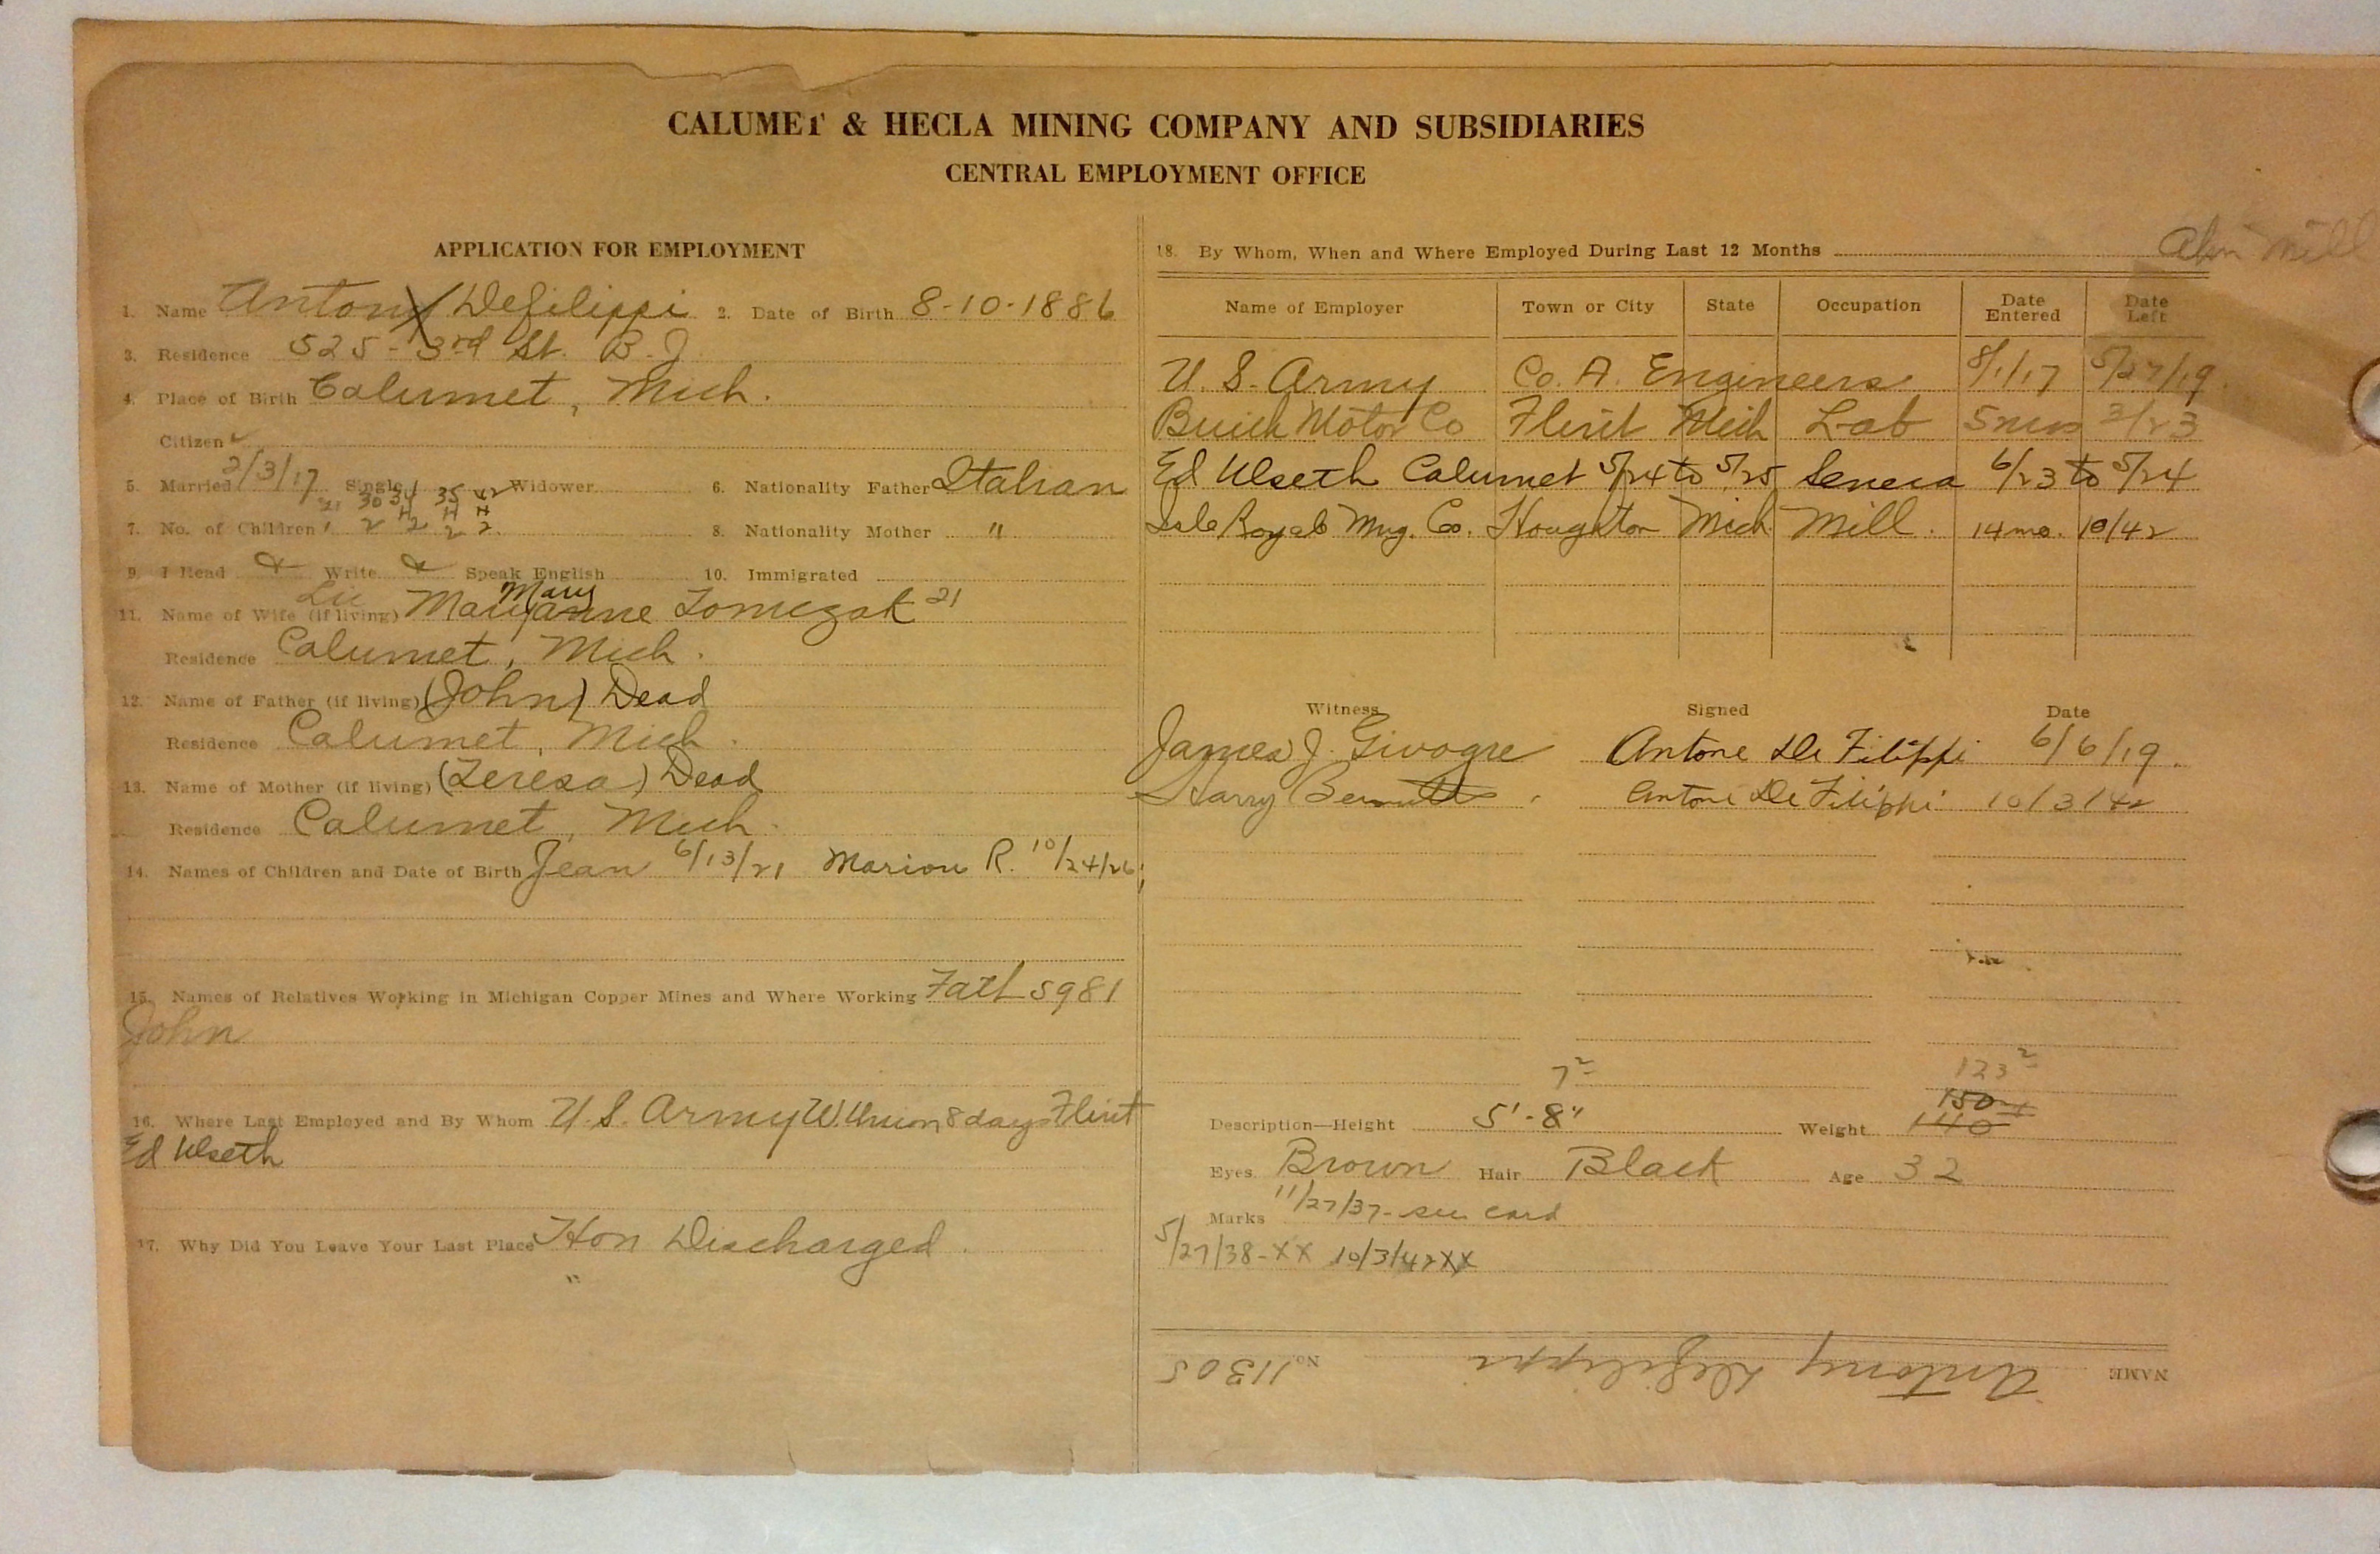 CALUMET & HECLA MINING COMPANY AND SUBSIDIARIES
CENTRAL EMPLOYMENT OFFICE
APPLICATION FOR EMPLOYMENT
1. Name Antony Defilippi 2. Date of Birth 8-10-1886
3. Residence 525-3rd St. B.J.
4. Place of Birth Calumet, Mich.
Citizen ✓
5. Married 2/3/17 Single Widower 6. Nationality Father Italian
21 30 34 35 42
H H H
7. No. of Children 1 2 2 2 2 8. Nationality Mother "
9. I Read Write Speak English 10. Immigrated
Mary
11. Name of Wife (if living) Maryanne Tomczak 21
Residence Calumet, Mich.
12. Name of Father (if living) (John) Dead
Residence Calumet, Mich.
13. Name of Mother (if living) (Teresa) Dead
Residence Calumet, Mich.
14. Names of Children and Date of Birth Jean 6/13/21 Marion R. 10/24/26
15. Names of Relatives Working in Michigan Copper Mines and Where Working Fath 5981
John
16. Where Last Employed and By Whom U.S. Army W. Union 8 days Flint
Ed Ulseth
17. Why Did You Leave Your Last Place Hon Discharged.
"
18. By Whom, When and Where Employed During Last 12 Months
Mill
Name of Employer Town or City State Occupation Date Entered Date Left
U.S. Army Co. A. Engineers 8/1/17 5/27/19.
Buick Motor Co Flint Mich Lab 5 mos 3/23
Ed Ulseth Calumet 5/24 to 5/25 Seneca 6/23 to 5/24
Isle Royale Mng. Co. Houghton Mich Mill. 14 mo. 10/42
Witness Signed Date
James J. Givogre Antone De Filippi 6/6/19.
Harry Bennetts Antone De Filippi 10/3/42
7² 123²
150
Description—Height 5'-8" Weight 140
Eyes Brown Hair Black Age 32
Marks 11/27/37-see card
5/27/38-XX 10/3/42XX
NAME Antony Defilippi No. 11305